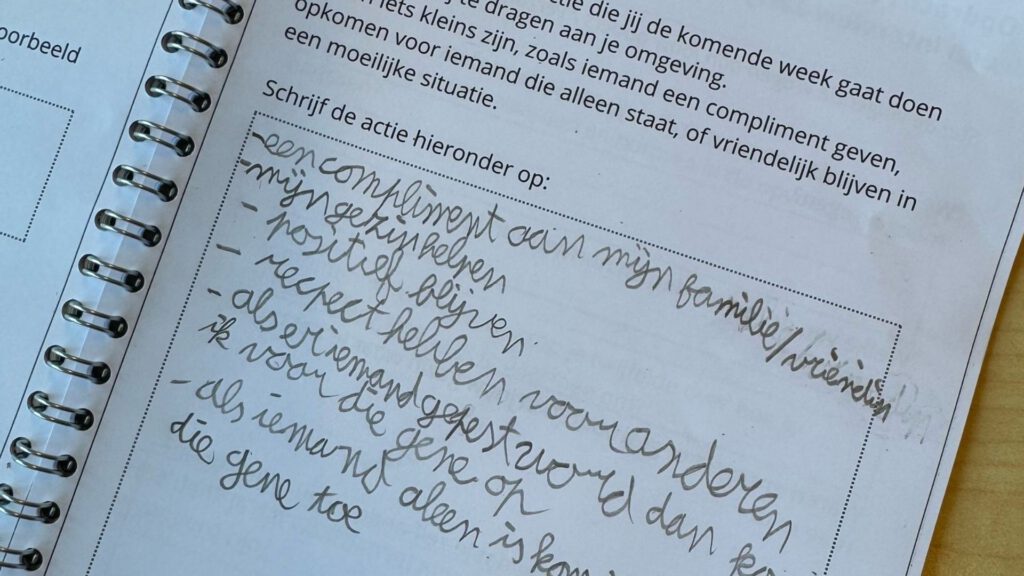 oorbeeld
ctie die jij de komende week gaat doen
te dragen aan je omgeving.
n iets kleins zijn, zoals iemand een compliment geven,
opkomen voor iemand die alleen staat, of vriendelijk blijven in
een moeilijke situatie.
Schrijf de actie hieronder op:
-een compliment aan mijn familie/vriendin
-mijn gezin helpen
- positief blijven
- respect hebben voor anderen
- als er iemand gepest word dan ko
ik voor die gene op
- als iemand aleen is kom
die gene toe